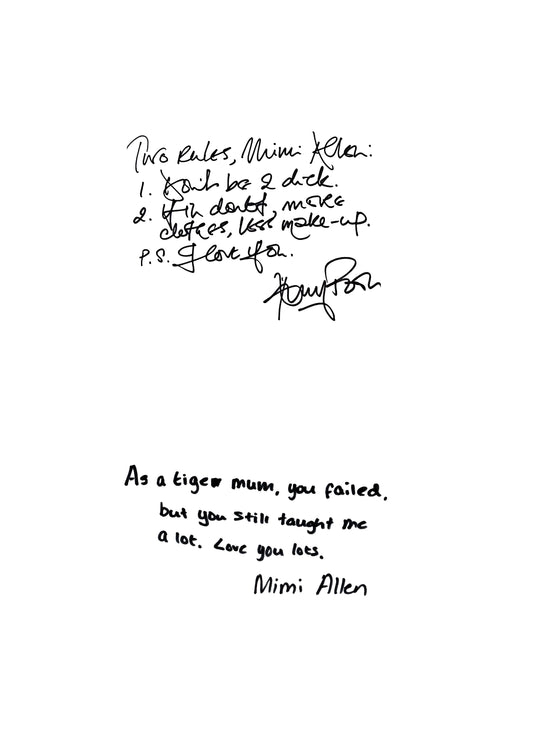 Two rules, Mimi Allen:
1. Don't be a dick.
2. If in doubt, more
clothes, less make-up.
P.S. I love you.
As a tiger mum, you failed,
but you still taught me
a lot. Love you lots.
Mimi Allen